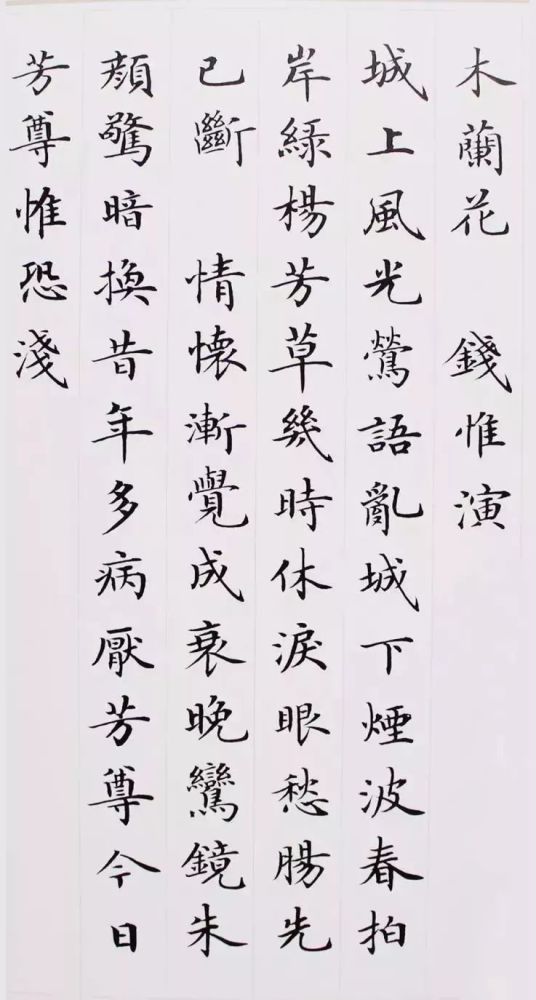 木蘭花　錢惟演
城上風光鶯語亂城下煙波春拍
岸綠楊芳草幾時休淚眼愁腸先
已斷　情懷漸覺成衰晚鸞鏡朱
顏驚暗換昔年多病厭芳尊今日
芳尊惟恐淺